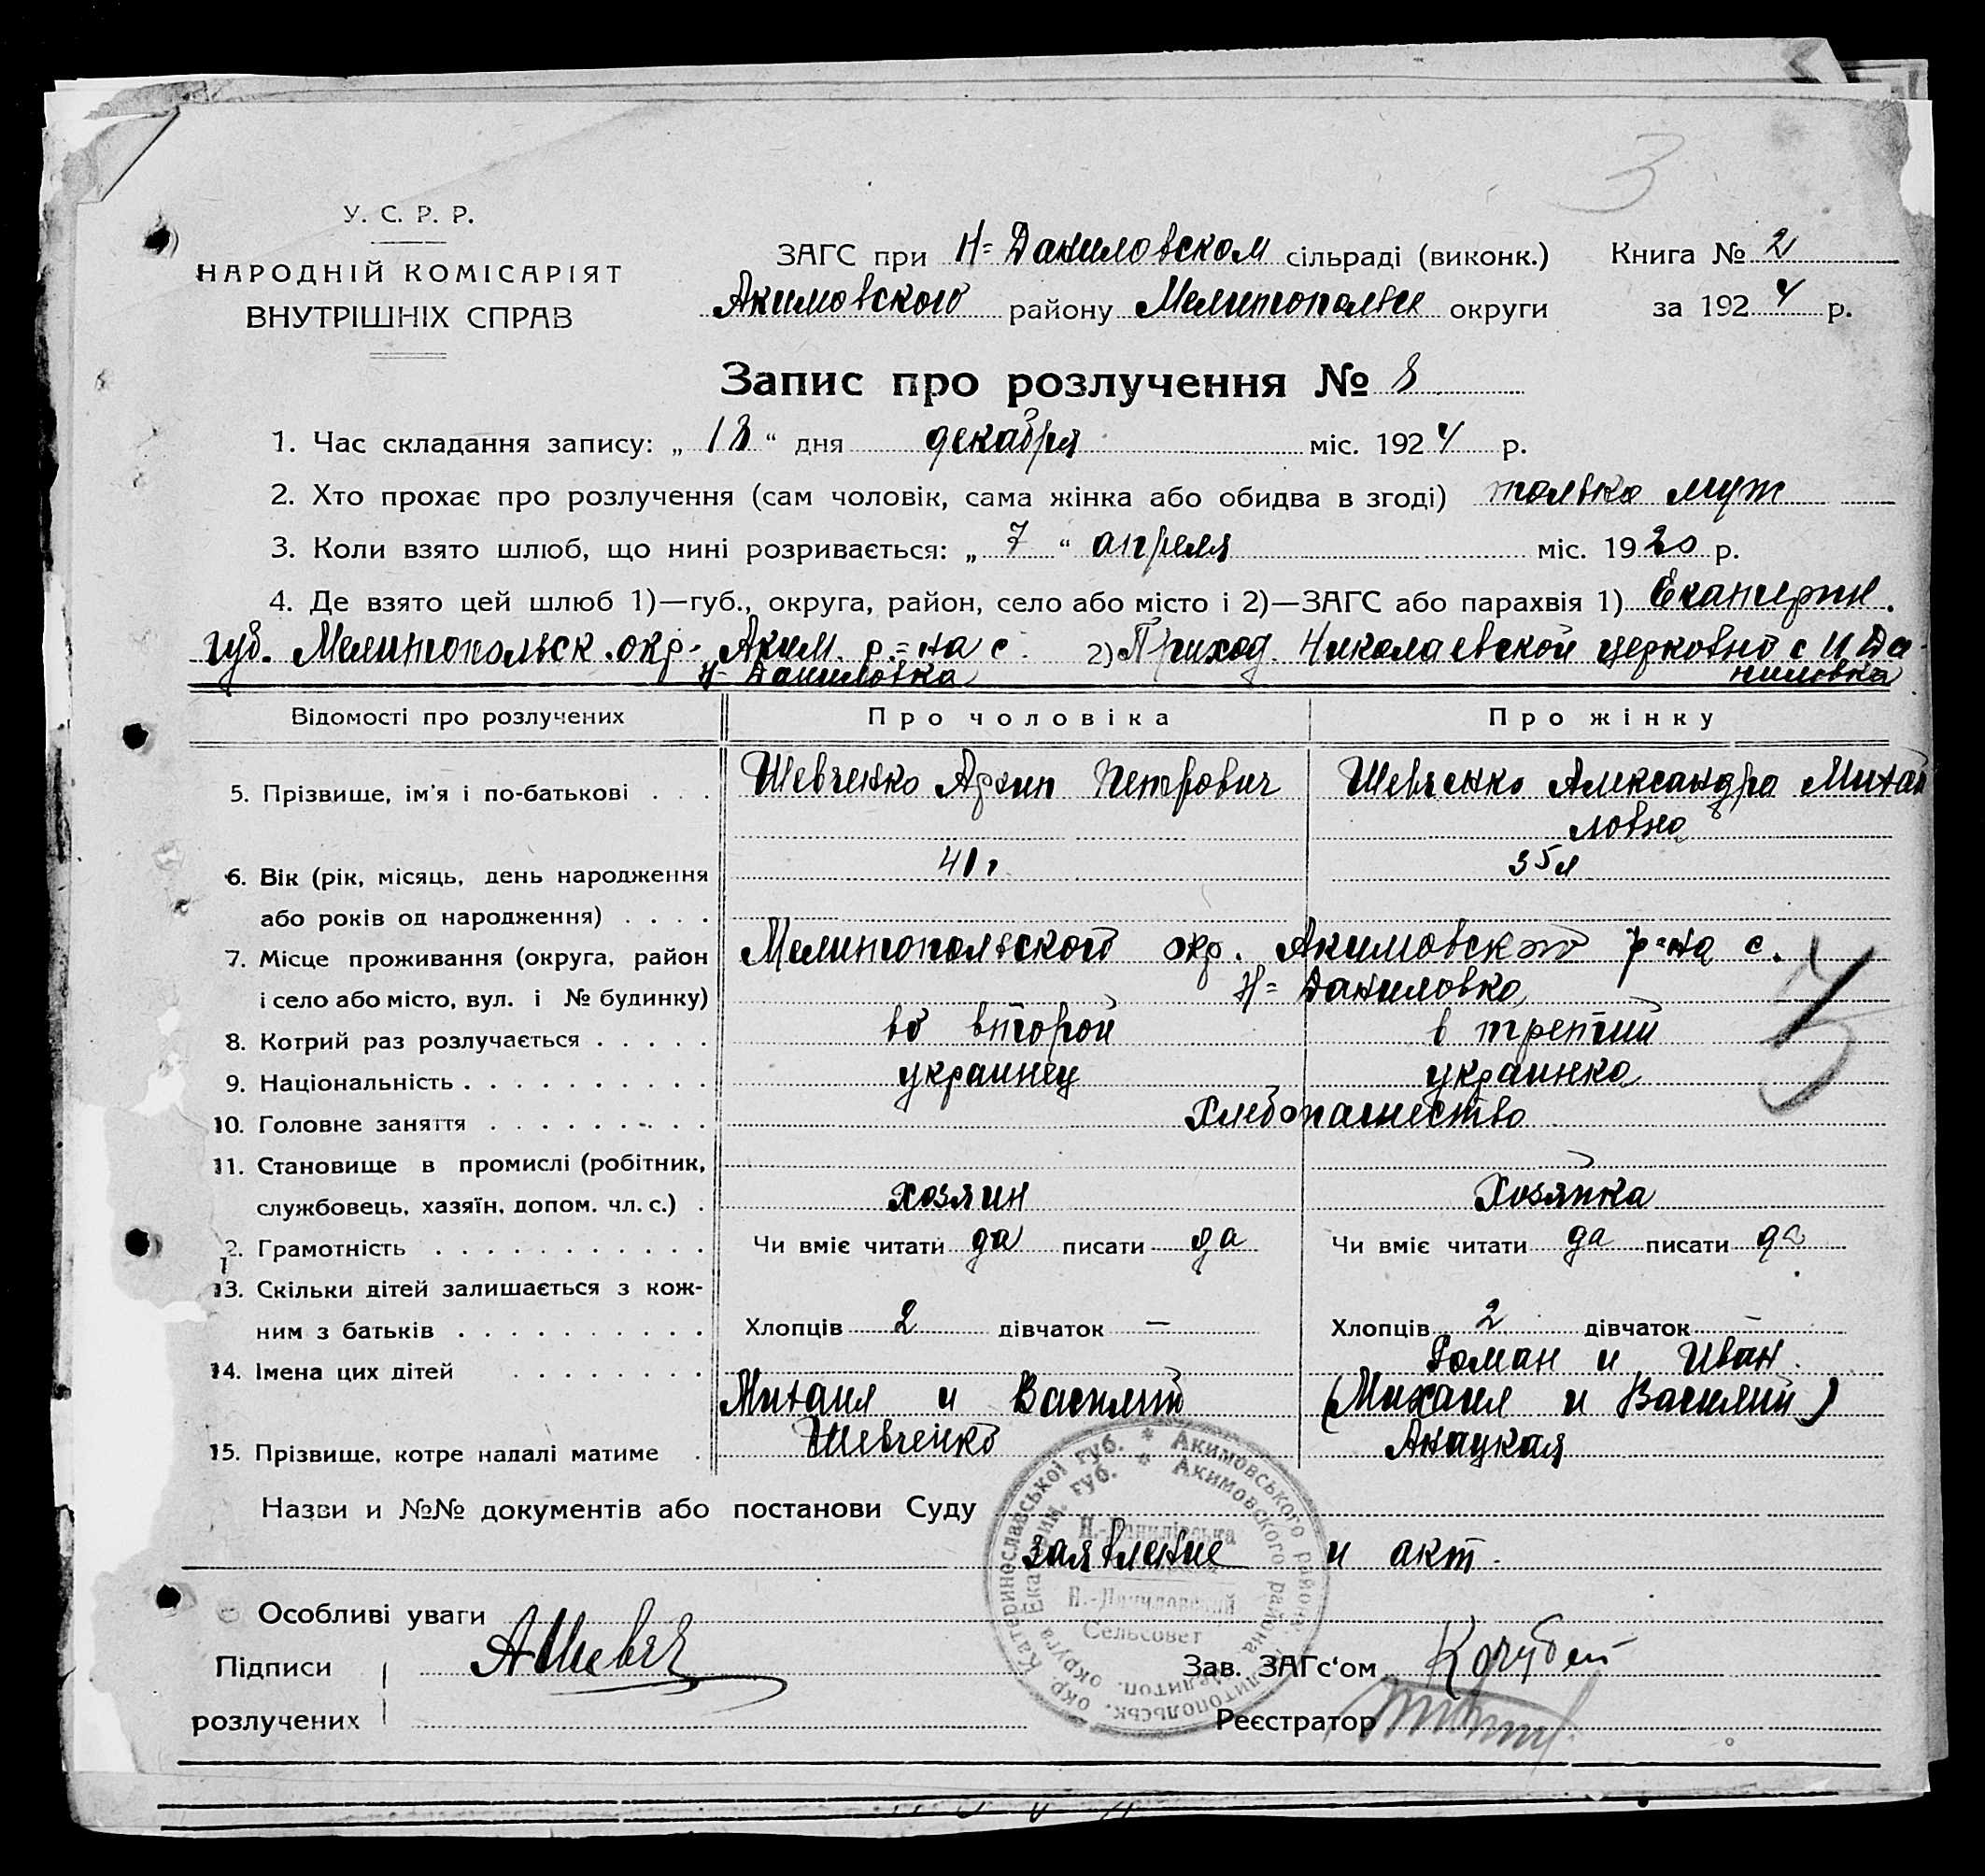 3
У. С. Р. Р.
НАРОДНІЙ КОМІСАРІЯТ
ВНУТРІШНІХ СПРАВ
ЗАГС при Н-Даниловском сільраді (виконк.) Книга № 2
Акимовского району Мелитопольск округи за 1924 р.
Запис про розлучення № 8
1. Час складання запису: „ 18 “ дня декабря міс. 1924 р.
2. Хто прохає про розлучення (сам чоловік, сама жінка або обидва в згоді) только муж
3. Коли взято шлюб, що нині розривається: „ 7 “ апреля міс. 1920 р.
4. Де взято цей шлюб 1)—губ., округа, район, село або місто і 2)—ЗАГС або парахвія 1) Екатерин.
губ. Мелитопольск. окр. Аким. р=на с. 2) Приход Николаевской церковью с Н Да-
Н-Даниловка ниловка
Відомості про розлучених Про чоловіка Про жінку
5. Прізвище, ім'я і по-батькові . . . Шевченко Архип Петрович Шевченко Александра Михай
ловна
6. Вік (рік, місяць, день народження 41 г. 35 л
або років од народження) . . . .
7. Місце проживання (округа, район Мелитопольского окр. Акимовского р=на с.
і село або місто, вул. і № будинку) Н= Даниловка
8. Котрий раз розлучається . . . . . во второй в третий
9. Національність . . . . . . . . . . украинец украинка
10. Головне заняття . . . . . . . . . Хлебопашество
11. Становище в промислі (робітник,
службовець, хазяїн, допом. чл. с.) . хозяин Хозяйка
12. Грамотність . . . . . . . . . . . Чи вміє читати да писати да Чи вміє читати да писати да
13. Скільки дітей залишається з кож-
ним з батьків . . . . . . . . . . Хлопців 2 дівчаток — Хлопців 2 дівчаток —
14. Імена цих дітей . . . . . . . . Роман и Иван.
Михаил и Василий (Михаил и Василий)
15. Прізвище, котре надалі матиме . Шевченко Анацкая
Назви и №№ документів або постанови Суду
заявление и акт.
Катеринославської губ. * Акимовського району
Екатерин. губ. * Акимовского района
Н.-Данилівська
Н.-Даниловский
Сельсовет
Особливі уваги
Підписи АШевч Зав. ЗАГс‘ом Кочубей
розлучених Реєстратор